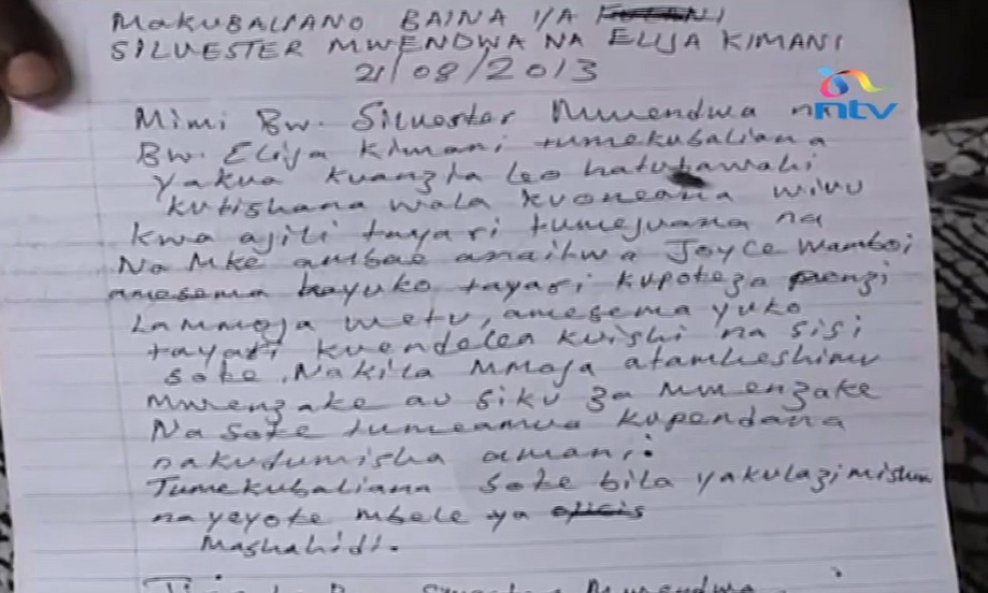 MAKUBALIANO BAINA YA
SILVESTER MWENDWA NA ELIJA KIMANI
21/08/2013
ntv
Mimi Bw. Silvester Mwendwa na
Bw. Elija Kimani tumekubaliana
yakua kuanzia leo hatutawahi
kutishana wala kuoneana wivu
kwa ajili tayari tumejuana na
Na Mke ambae anaitwa Joyce Wamboi
amesema hayuko tayari kupoteza penzi
La mmoja wetu, amesema yuko
tayari kuendelea kuishi na sisi
sote. Na kila Mmoja atamheshimu
Mwenzake au siku za Mwenzake
Na Sote tumeamua kupendana
nakudumisha amani.
Tumekubaliana sote bila yakulazimishwa
na yeyote mbele ya
Mashahidi.
Mwendwa